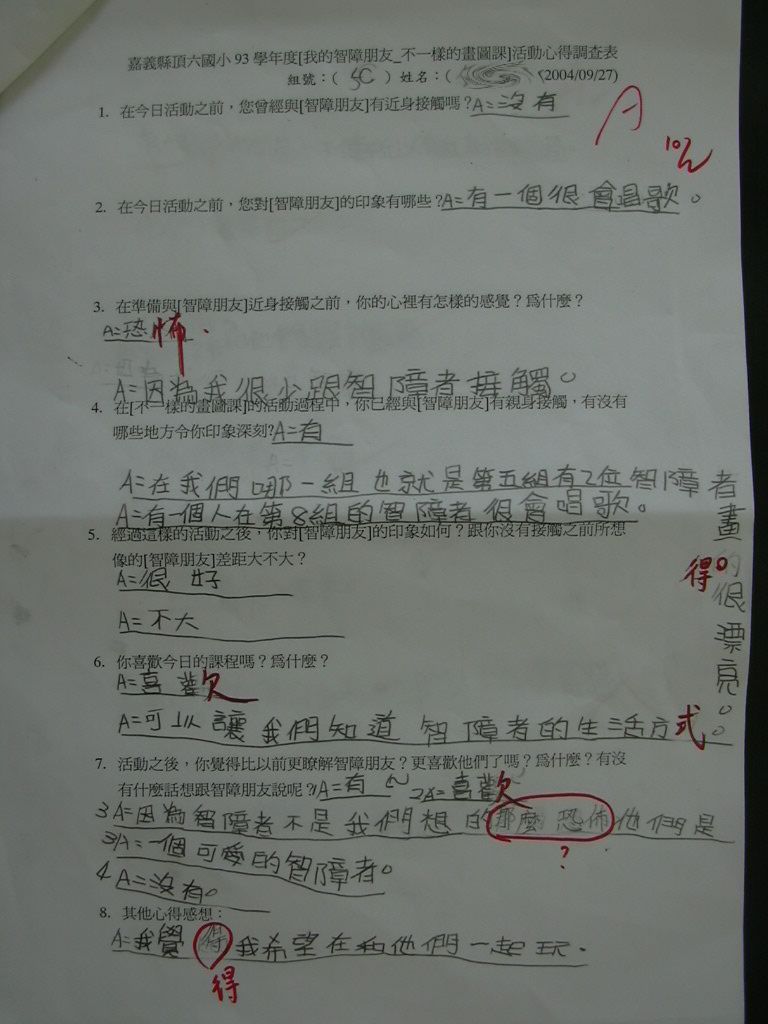 嘉義縣頂六國小93學年度[我的智障朋友_不一樣的畫圖課]活動心得調查表
組號：( 5C ) 姓名：( (2004/09/27)
1. 在今日活動之前，您曾經與[智障朋友]有近身接觸嗎？A=沒有
A
10/2
2. 在今日活動之前，您對[智障朋友]的印象有哪些？A=有一個很會唱歌。
3. 在準備與[智障朋友]近身接觸之前，你的心裡有怎樣的感覺？為什麼？
A=恐怖.
A=因為我很少跟智障者接觸。
4. 在[不一樣的畫圖課]的活動過程中，你已經與[智障朋友]有親身接觸，有沒有
哪些地方令你印象深刻?A=有
A=在我們哪一組也就是第五組有2位智障者畫的很漂亮。
得
A=有一個人在第8組的智障者很會唱歌。
5. 經過這樣的活動之後，你對[智障朋友]的印象如何？跟你沒有接觸之前所想
像的[智障朋友]差距大不大？
A=很好
A=不大
6. 你喜歡今日的課程嗎？為什麼？
A=喜歡
A=可以讓我們知道智障者的生活方式。
7. 活動之後，你覺得比以前更瞭解智障朋友？更喜歡他們了嗎？為什麼？有沒
有什麼話想跟智障朋友說呢？1A=有 2A=喜歡
3A=因為智障者不是我們想的那麼恐怖他們是
?
3A=一個可愛的智障者。
4A=沒有。
8. 其他心得感想：
A=我覺得我希望在和他們一起玩.
得